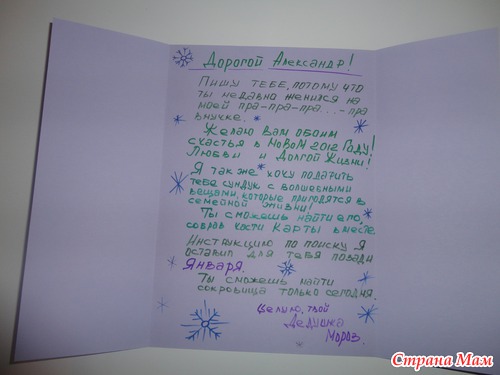 Дорогой Александр!
Пишу тебе, потому что
ты недавно женился на
моей пра-пра-пра...-пра
внучке.
Желаю вам обоим
счастья в Новом 2012 Году!
Любви и Долгой Жизни!
Я так же хочу подарить
тебе сундук с волшебными
вещами, которые пригодятся в
семейной жизни!
Ты сможешь найти его,
собрав части Карты вместе.
Инструкцию по поиску Я
оставил для тебя позади
Января.
Ты сможешь найти
сокровища только сегодня.
Целую, твой
Дедушка
Мороз.
Страна Мам